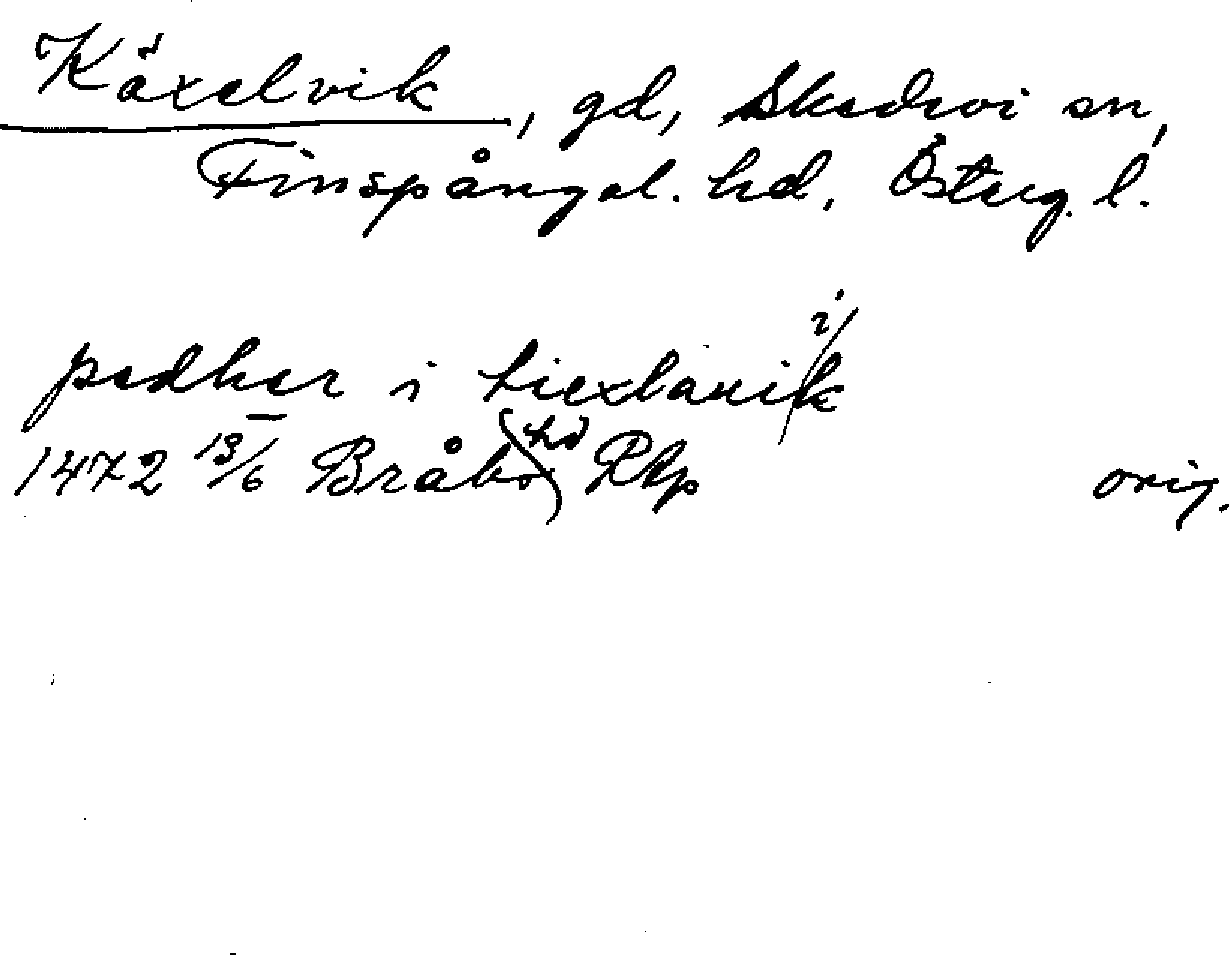 Käxelvik, gd, Skedevi sn,
Finspångal. hd, Österg. l.
pedher i kiexlauik
1472 13/6 Bråbo hd Rkp orig.